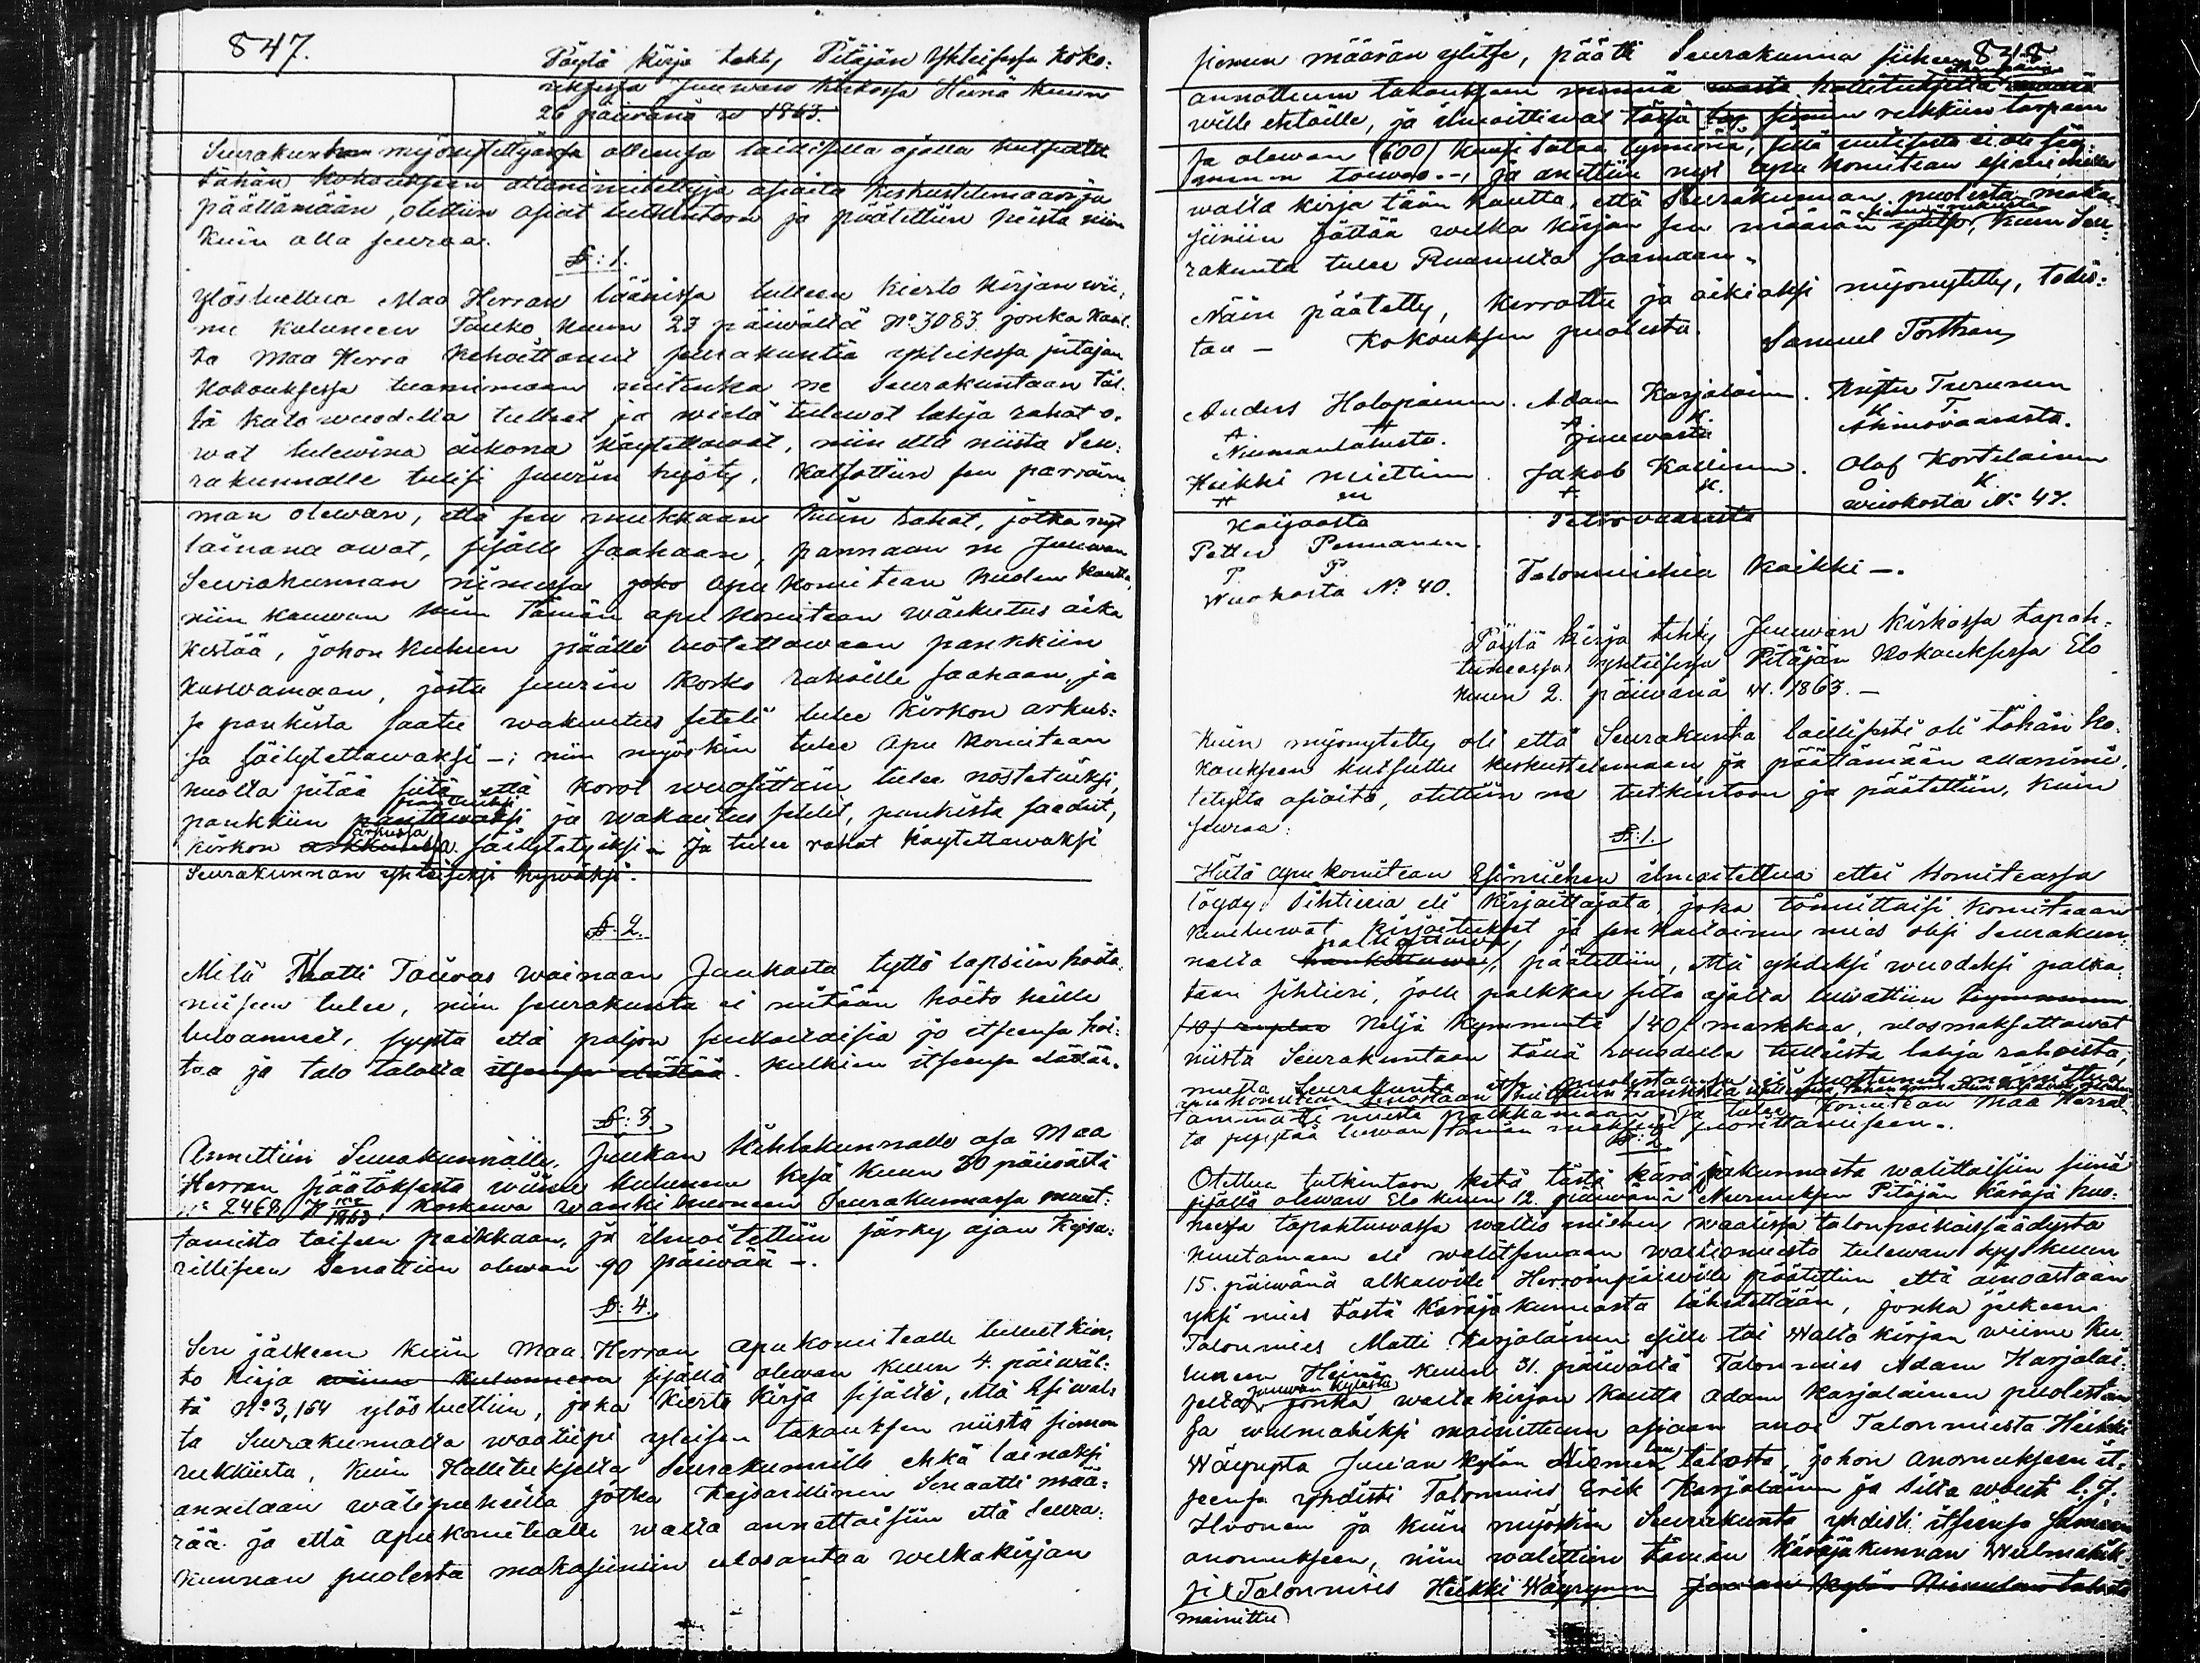 847.
Pöytä kirja tehty Pitäjän Ykteisessa koko:
uksessa Juuwan kirkossa Heinä kuun
26 päiwänä w 1863.
Seurakunnan myönnytettyänsä ollensa laillisella ajalla kutsuttu
tähän kokoukseen allanimitettyjä asioita keskustelemaan ja
päättämään, otettiin asiat tutkintoon ja päätettiin heistä niin
kuin alla seuraa.
§: 1.
Ylösluettua Maa Herran läänissa tulleen kierto kirjan wii,
me kuluneen Touko kuun 23 päiwältä No 3083 jonka kaut.
ta Maa Herra kehoittanut seurakuntia yhteisessa pitäjän
kokouksessa tuumimaan mitenkä ne Seurakuntaan täl.
tä kato wuodella tulleet ja wielä tulewat lahja rahat o.
wat tulewina aikona käytettäwät, niin että niista Seu:
rakunnalle tulisi suurin hyöty, katsottiin sen parraim
man olewan, että sen mukkaan kuin rahat, jotka nyt
lainana owat, sisälle saahaan, pannaan ne Juuwan
Seurakunnan nimessa joko apu komitean huolen kautta,
niin kauwan kuin Tämän apu komitean waikutus aika
kestää, johon kuluun päälle luotettawaan pankkiin
kaswamaan, josta suurin korko rahoille saahaan, ja
se pankista saatu wakuutus seteli tulee kirkon arkus:
sa säilytettäwäksi -; niin myöskin tulee apu komitean
huolta pitää siitä että korot wuosittain tulee nostetuiksi,
pankkiin pantawaksi ja wakuutus setelit, pankista saadut,
kirkon arkussa säilytetyiksi - ja tulee rahat käytettäwäksi
Seurakunnan yhteiseksi hywäksi.
§. 2.
Mitä Matti Toiwas wainaan Juukasta tyttö lapsiin hoita.
miseen tulee, niin seurakunta ei mitään hoito heille
luwanneet, syystä että paljon senkaltaisia jo itsensä hoi:
taa ja talo talolta itsensä elättää kulkien itsensä elätää.
§: 3.
Annettiin Seurakunnalle, Juukan kihlakunnalle osa Maa
Herran päätöksesta wiime kuluneen kesä kuun 30 päiwästä
No 2468 1863 koskewa wanki huoneen Seurakunnassa muut:
tamista toiseen paikkaan, ja ilmoitettiin järky ajan Kejsa:
rilliseen Senattiin olewan 90 päiwää -.
§: 4.
Sen jälkeen kuin Maa Herran apukomitealle tulleet kier,
to kirja wiime kuluneen sisällä olewan kuun 4. päiwäl:
tä No 3,154 ylös luettiin, joka kierto kirja sisälti, että Esiwal:
ta Seurakunnalta waatiipi yleisen takauksen niistä siemen
rukkiista, kuin Hallitukselta Seurakunnille ehkä lainaksi
annetaan wälipuheilla jotka Kejsarillinen Senaatti mää:
rää ja että apukomitealle walta annettaisiin että Seura:
kunnan puolesta makasiiniin ulosantaa welkakirjan
848
siemen määrän ylitse, päätti Seurakunna siihen
annettuun takaukseen mennä wasta hallitukselta määrä
wille ehtoille, ja ilmoittiwat tässä siemen rukkiin tarpeen
sa olewan (600) kuusi sataa tynnöriä, sillä uutisesta ei ole sie:
menen toiwoa.-, ja annettiin nyt apu komitean esimiehelle
walta kirja tään kautta, että Seurakunnan puolesta maka:
siiniin jättää welka kirjan sen määrän ylitse, kuin Seu:
rakunta tulee Ruunulta saamaan.
Näin päätetty, kerrottu ja oikiaksi myönnytetty, todis:
taa - Kokouksen puolesta. Samuel Porthan
Anders Holopainen. Adam Karjalainen. Krister Turunen
A H A K K T
Niemenlahdesta. Juuwasta Ahmowaarasta.
Heikki Miettinen Jakob Kallinen. Olof Kortelainen
H M J K O K
Haijoosta Petrowaarasta wuokosta No 47.
Petter Pennanen.
P P
Wuokosta No 40. Talonmiehia kaikki -.
Pöytä kirja tehty Juuwan kirkossa tapah:
tuneessa yhteisessa Pitäjän kokouksessa Elo
kuun 2. päiwänä w. 1863. -
Kuin myönnytetty oli että Seurakunta laillisesti oli tähän ko.
koukseen kutsuttu keskustelemaan ja päättämään allanimi,
tetyita asioita, otettiin ne tutkintoon ja päätettiin, kuin
seuraa:
§:1.
Että apukomitean Esimiehen ilmoitettua ettei komiteassa
löydy Sihtiiria eli Kirjoittajata, joka toimittaisi komiteaan
kuuluwat kirjoitukset ja sen kaltainen mies olisi Seurakun:
nalta palkattawa, päätettiin, että yhdeksi wuodeksi palka:
taan sihtieri, jolle palkkaa siltä ajalta luwattiin kymmenen
(10) ruplaa Neljä kymmentä (40) markkaa, ulosmaksettawat
niistä Seurakuntaan tällä wuodella tulleista lahja rahoista,
mutta Seurakunta itse puolestaansa ei suostunut mainittua
ammattimiesta palkkamaan, ja tulee komitean Maa Herral
ta pyytää luwan tämän maksun suorittamiseen.
§. 2
Otettua tutkintoon ketä tästä käräjäkunnasta walittaisiin siinä
sisällä olewan Elo kuun 12. päiwänä Nurmeksen Pitäjän käräjä huo:
neessa tapahtuwassa waltio miehen waalissa talonpoikaissäädysta
kuulumaan eli walitsemaan waltiomiesta tulewan syyskuun
15. päiwänä alkawille Herrainpäiwille päätettiin että ainoastaan
yksi mies tästä Käräjäkunnasta lähetettään, jonka jälkeen
Talonmies Matti Karjalainen esille toi walta kirjan wiime ku
luneen Heinä kuun 31. päiwältä Talonmies Adam Karjalai:
selta Juuwan kylästä, jonka waltakirjan kautta Adam Karjalainen puolestan
sa walmeheksi mainittuun asiaan anoi Talonmiesta Heikki
Wäyrystä Juu'an kylän Niemelan talosta, johon anomukseen it,
sensä yhdisti Talonmies Erik Karjalainen ja
Hwonen ja kuin myöskin Seurakunta yhdisti itsensä samaan
anomukseen, niin walittiin tämän Käräjäkunnan Walmehek:
si Talonmies Heikki Wäyrynen Juu'an kylän Niemelan talosta
mainittu